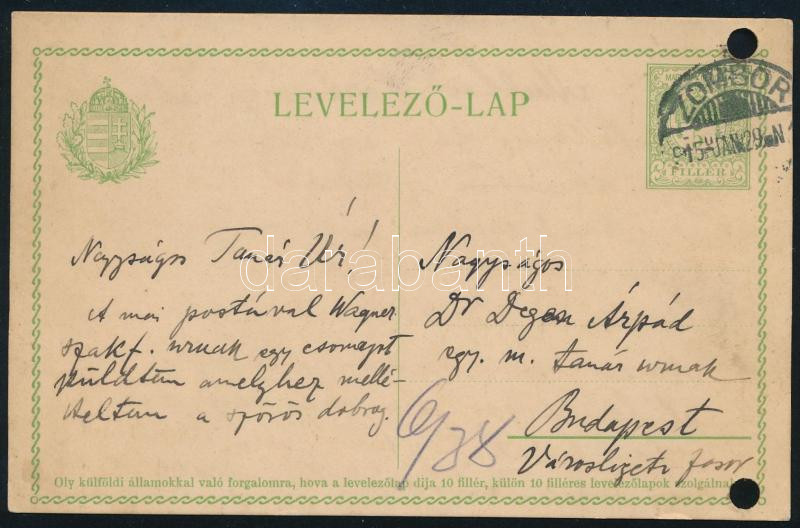 LEVELEZŐ-LAP
FILLÉR
ZOMBOR
915 JAN 29
Nagyságos Tanár Úr!
A mai postával Wagner
szakf. urnak egy csomagot
küldtem amelyhez mellé-
keltem a szőrös dobrog.
Nagyságos
Dr Degen Árpád
egy. m. tanár urnak
Budapest
Városligeti fasor
6/38
Oly külföldi államokkal való forgalomra, hova a levelezőlap díja 10 fillér, külön 10 filléres levelezőlapok szolgálnak
darabanth